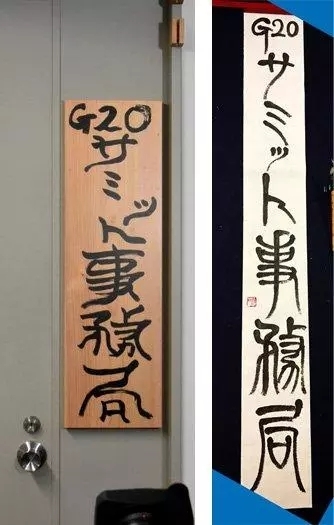 G20サミット事務局
G20サミット事務局